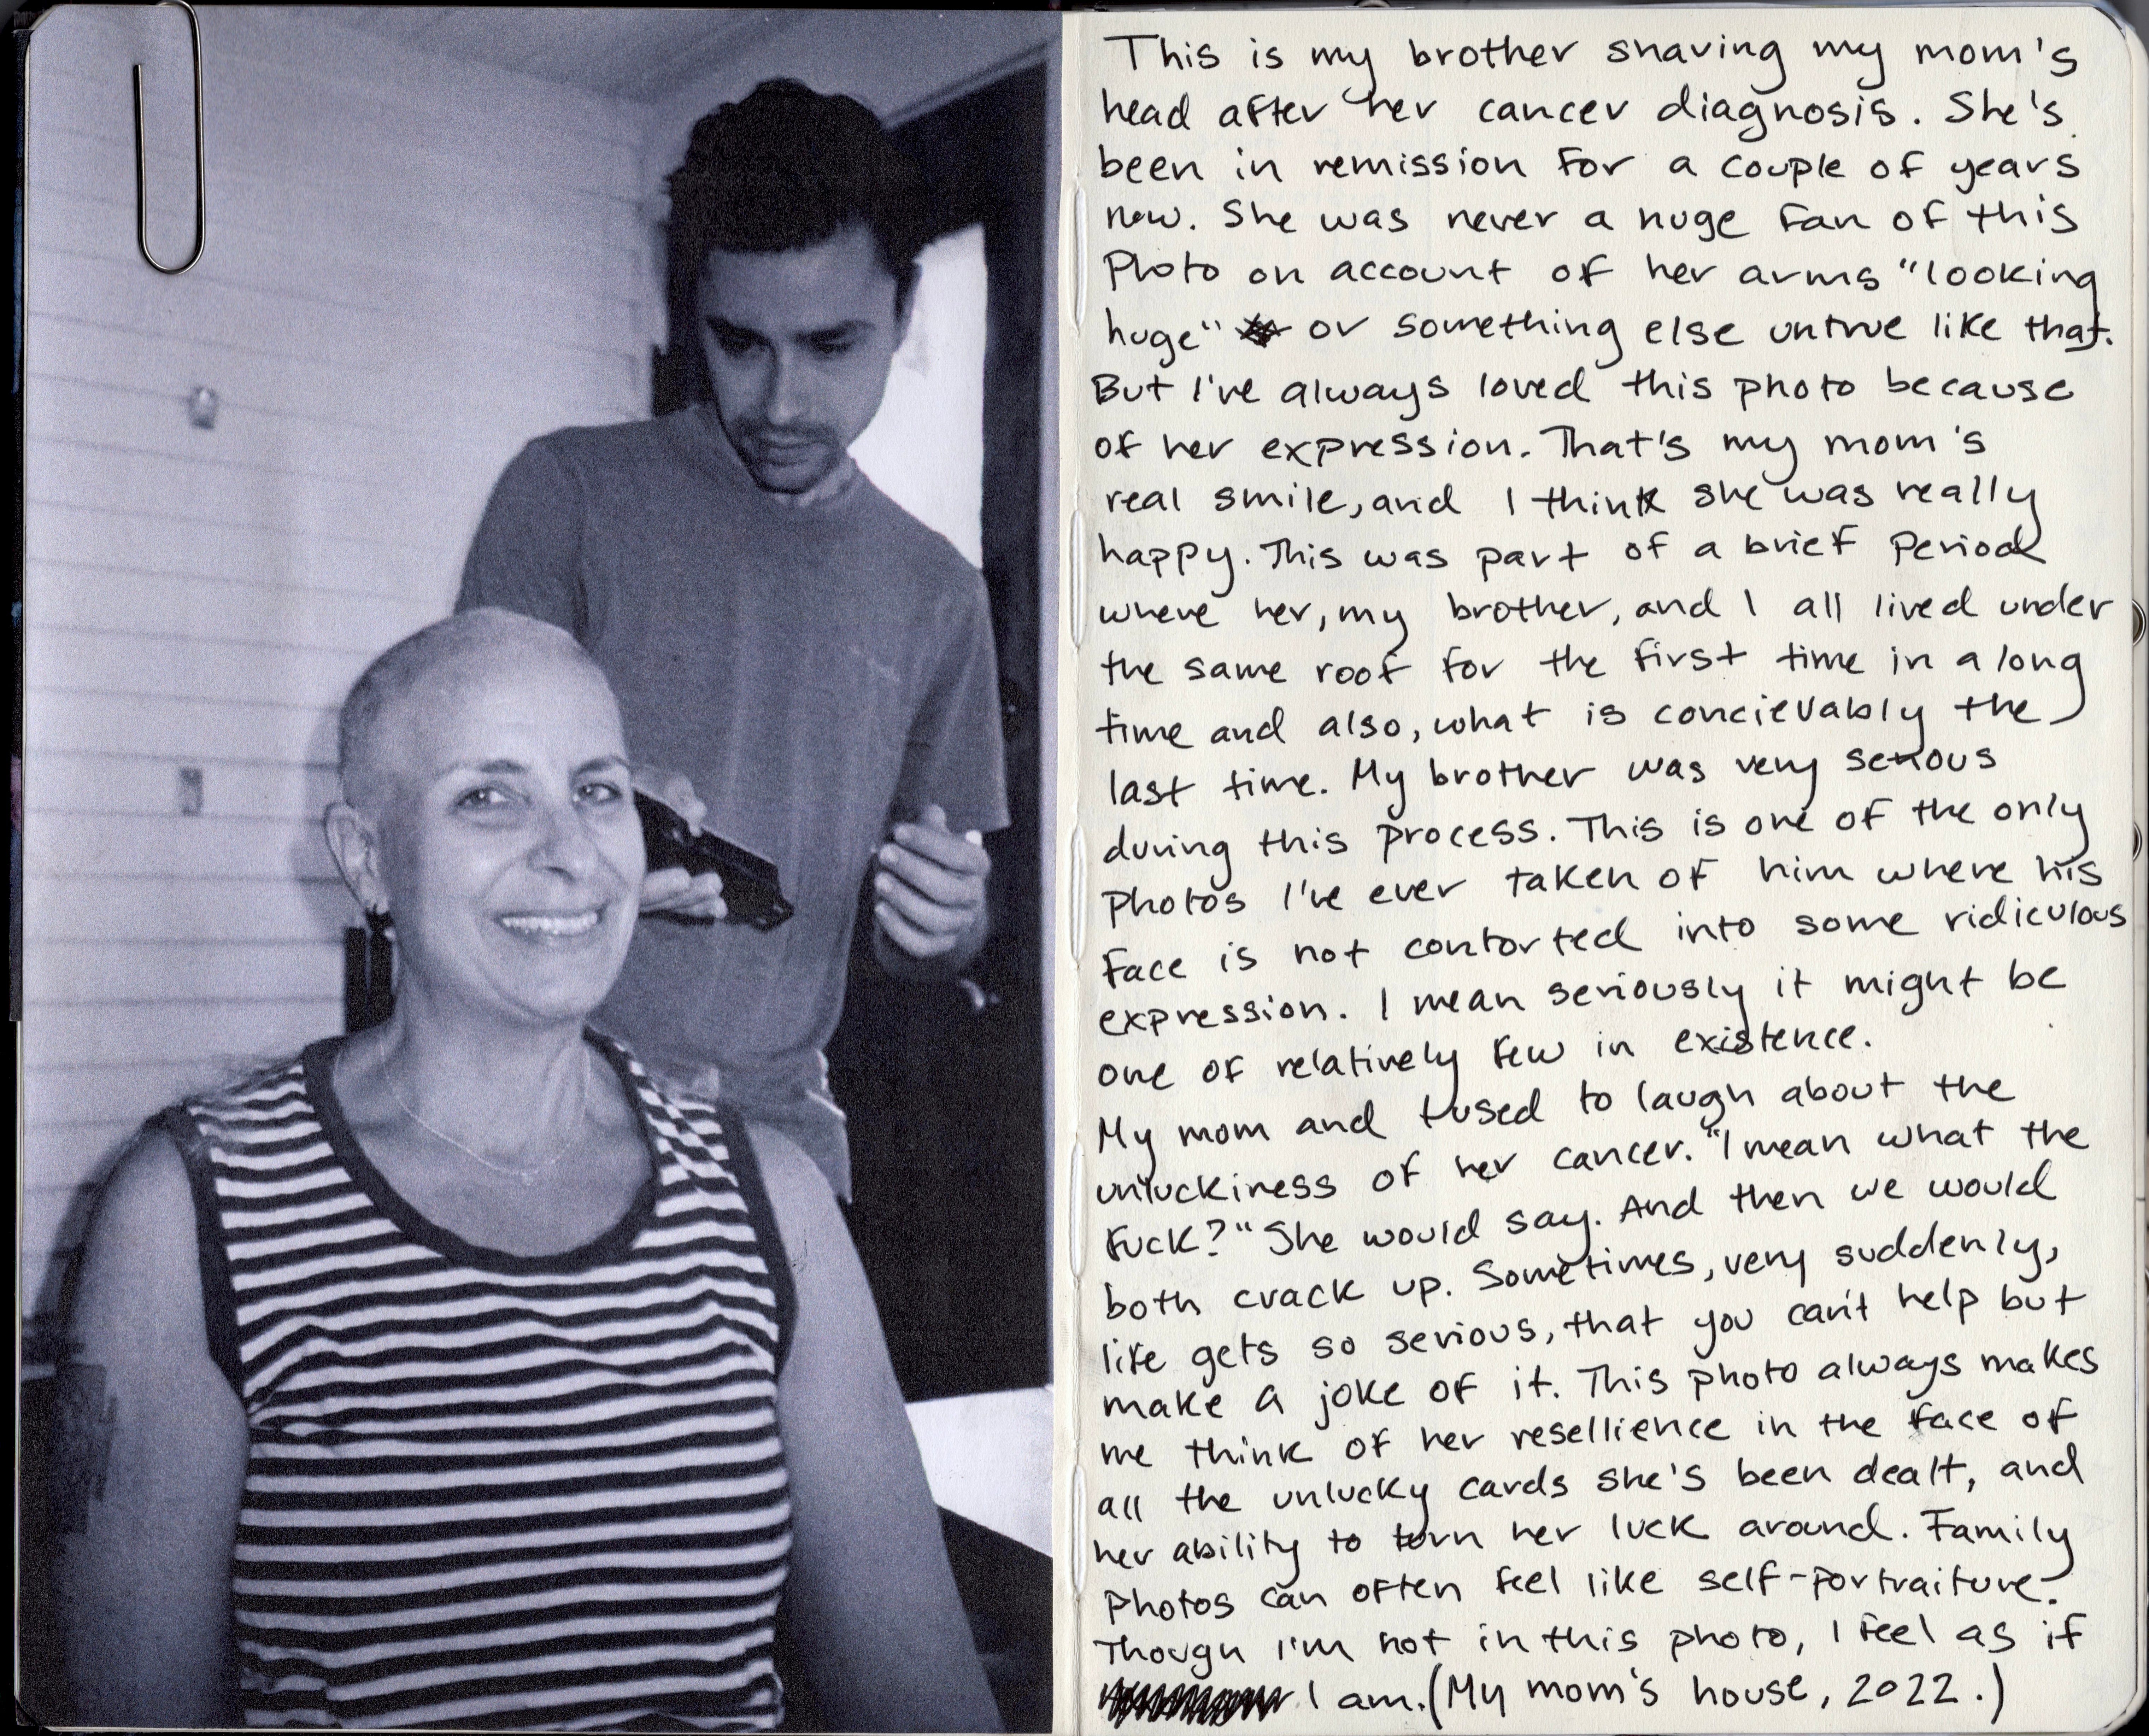 This is my brother shaving my mom's
head after her cancer diagnosis. She's
been in remission for a couple of years
now. She was never a huge fan of this
Photo on account of her arms "looking
huge" or something else untrue like that.
But I've always loved this photo because
of her expression. That's my mom's
real smile, and I think she was really
happy. This was part of a brief period
where her, my brother, and I all lived under
the same roof for the first time in a long
time and also, what is concievably the
last time. My brother was very serious
during this process. This is one of the only
photos I've ever taken of him where his
face is not contorted into some ridiculous
expression. I mean seriously it might be
one of relatively few in existence.
My mom and I used to laugh about the
unluckiness of her cancer. "I mean what the
fuck?" She would say. And then we would
both crack up. Sometimes, very suddenly,
life gets so serious, that you can't help but
make a joke of it. This photo always makes
me think of her resellience in the face of
all the unlucky cards she's been dealt, and
her ability to turn her luck around. Family
photos can often feel like self-portraiture.
Though I'm not in this photo, I feel as if
I am. (My mom's house, 2022.)